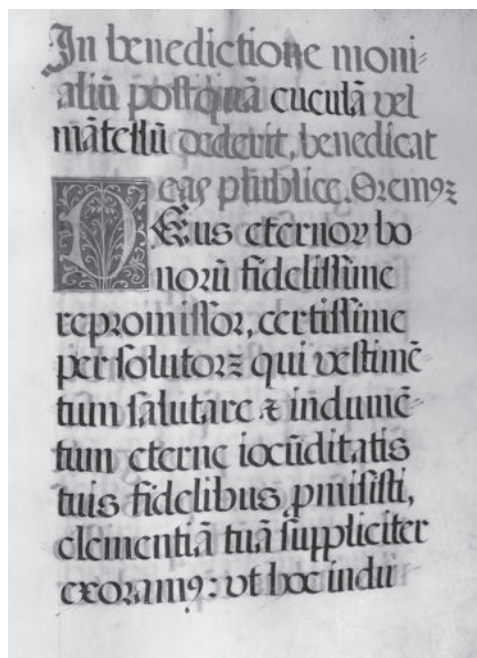 In benedictione moni-
aliū postquā cucullā vel
mātellū dederit, benedicat
eas publice. Oremꝰ
Deus eternoꝝ bo
noꝝ fidelissime
repromissor, certissime
persolutorꝫ qui vestimē
tum salutare ⁊ indumē-
tum eterne iocūditatis
tuis fidelibus ꝓmisisti,
clementiā tuā suppliciter
exoramꝰ: vt hoc indu